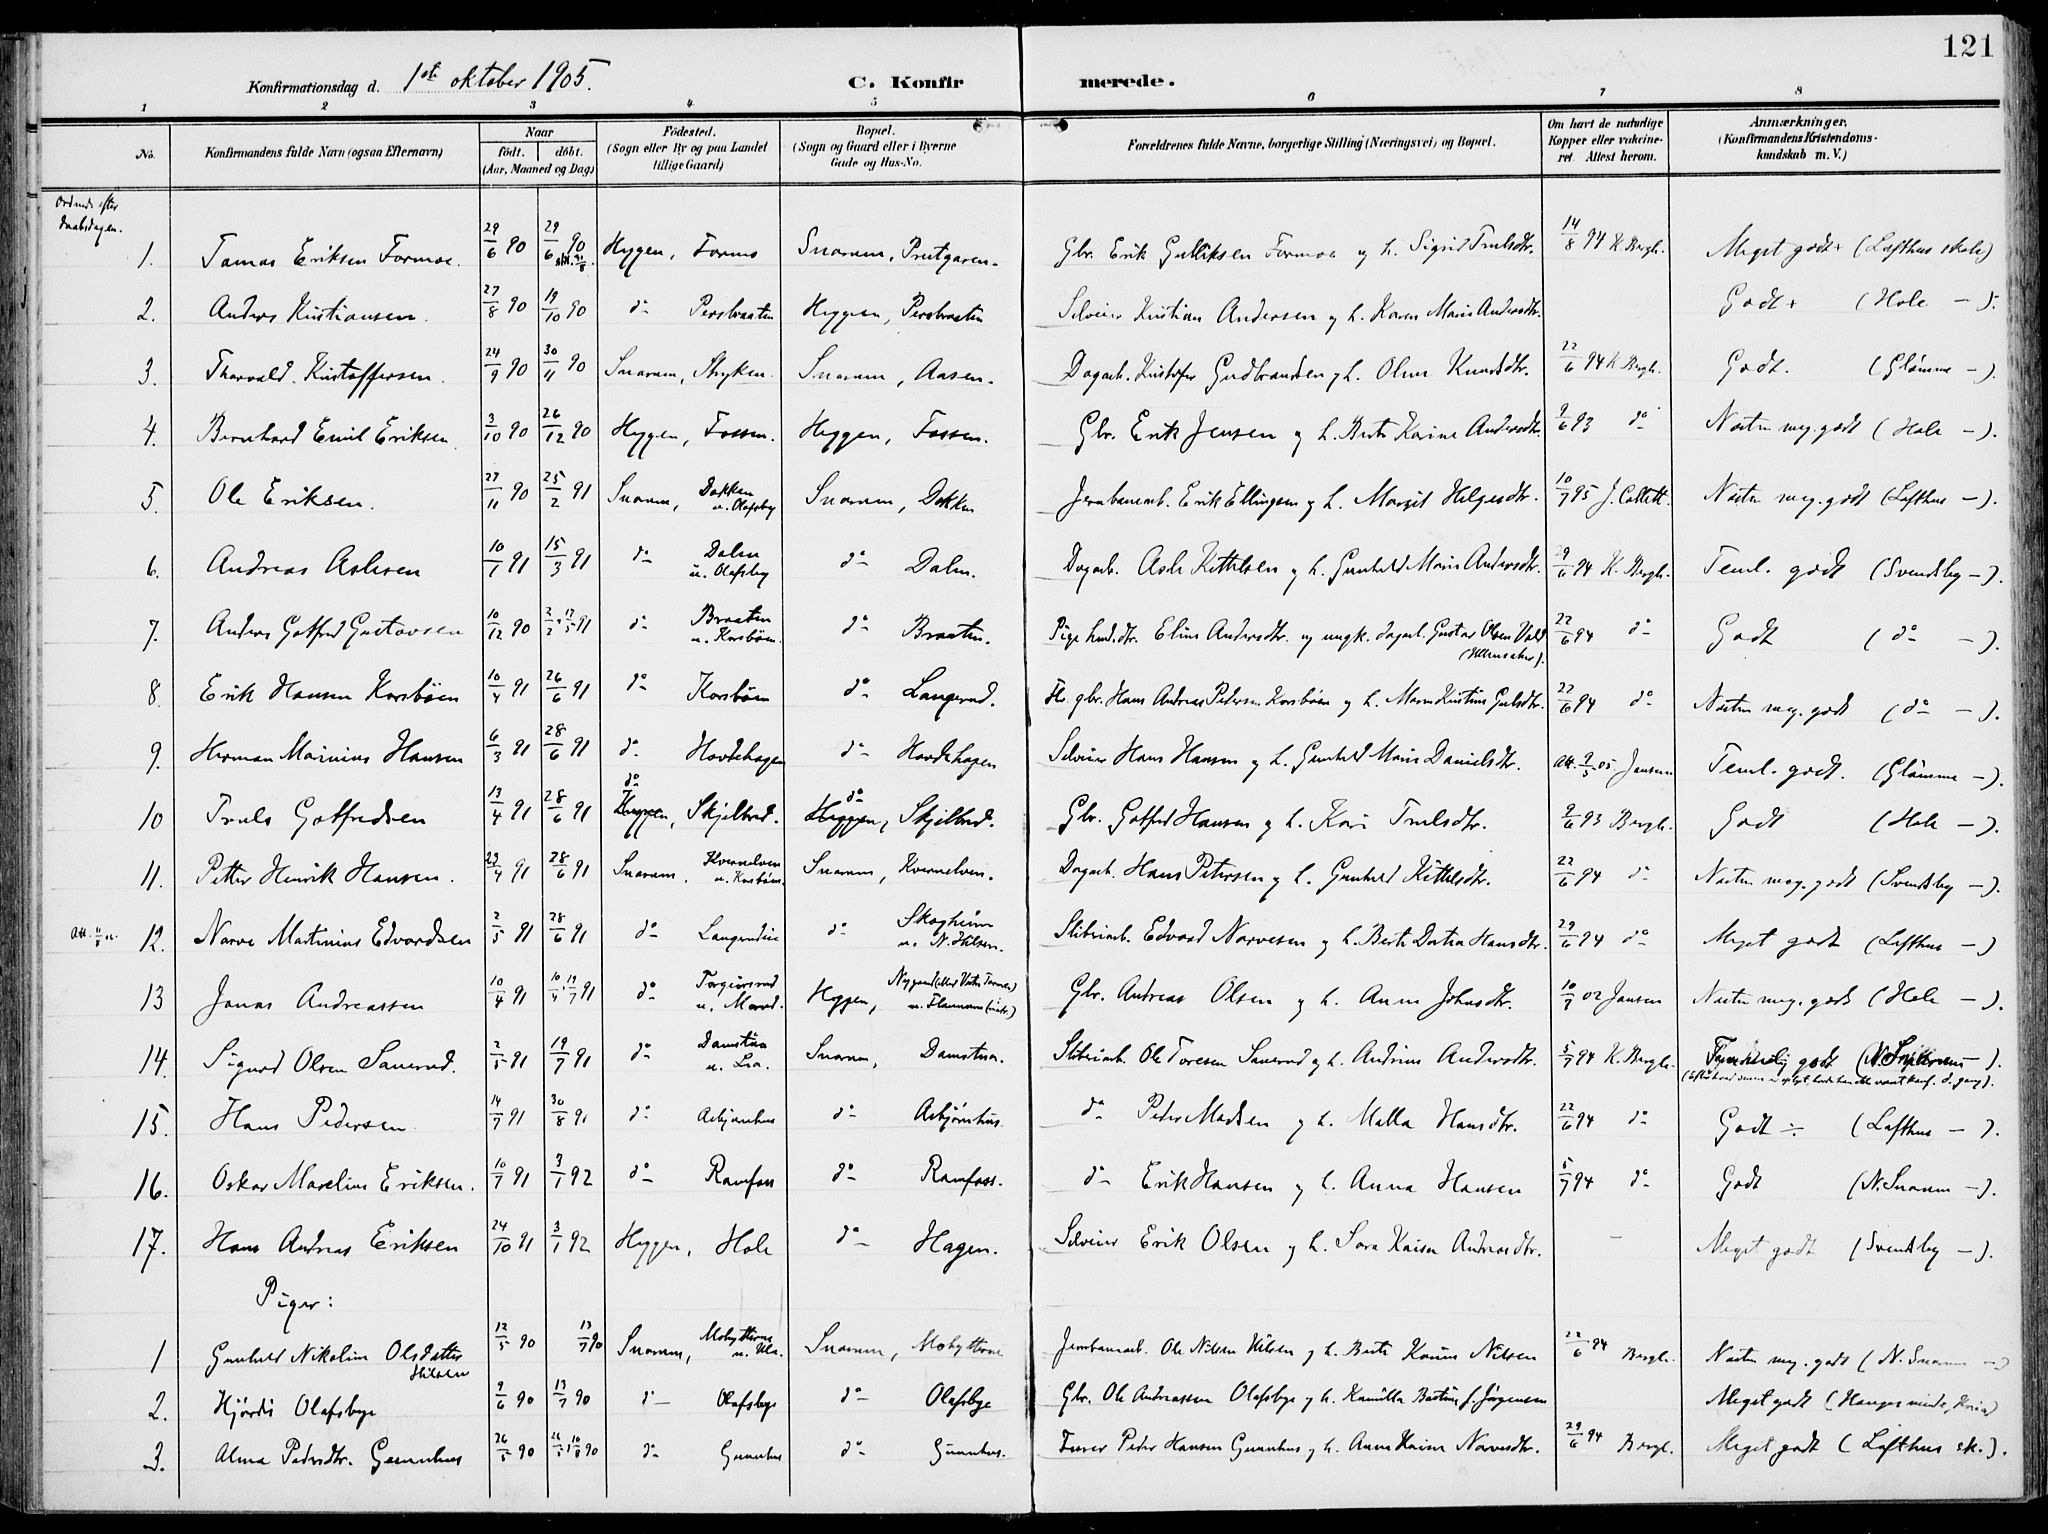 121
Konfirmationsdag d. 1ste oktober 1905.
C. Konfirmerede.
1 2 3 4 5 6 7 8
No. Konfirmandens fulde Navn (ogsaa Efternavn) Naar født. døbt. (Aar, Maaned og Dag) Fødested. (Sogn eller By og paa Landet tillige Gaard) Bopæl. (Sogn og Gaard eller i Byerne Gade og Hus-No. Forældrenes fulde Navne, borgerlige Stilling (Næringsvei) og Bopæl. Om havt de naturlige Kopper eller vakcineret Attest herom. Anmærkninger, (Konfirmandens Kristendomskundskab m. V.)
Ordnede efter daabsdagen.
1. Tomas Eriksen Formoe. 29/6 90 29/6 90 Hygen, Formo Snarum, Gbr. Erik Gulliksen Formoe og h. Sigrid Trulsdtr. 14/8 94 K. Bergh. Meget godt+ (Lofthus skole)
2. Anders Kristiansen. 27/8 90 19/10 90 do Persbraaten Heggen, Persbraaten Selveier Kristian Andersen og h. Karen Marie Andersdtr. Godt+ (Hole —).
3. Thorvald Kristoffersen. 24/9 90 30/11 90 Snarum, Stryken. Snarum, Aasen. Dagarb. Kristofer Gudbrandsen og h. Oline Knudsdtr. 22/6 94 K. Bergh. Godt. (Glømme —).
4. Bernhard Emil Eriksen. 3/10 90 26/12 90 Hyggen, Fossen. Heggen, Fossen. Gbr. Erik Jensen og h. Berte Karine Andersdtr. 9/6 93 do Næsten meg. godt (Hole —).
5. Ole Eriksen. 27/11 90 25/2 91 Snarum, Dokken u. Olafsby Snarum, Dokken Jernbanearb. Erik Ellingsen og h. Margit Helgesdtr. 10/7 95 J. Collett. Næsten meg. godt (Lofthus —).
6. Andreas Aslesen 10/1 91 15/3 91 do Dalen u. Olafsby do Dalen. Dagarb. Asle Kittelsen og h. Gunhild Marie Andersdtr. 29/6 94 K. Bergh. Teml. godt (Svendsby —).
7. Anders Gotfred Gustavsen 10/12 90 91 do Braaten u. Korsbøen. do Braaten. Pige husm.dtr. Eline Andersdtr. og ungk. dagarb. Gustav Olsen Vold 22/6 94 do Godt (do —).
8. Erik Hansen Korsbøen 10/4 91 26/6 91 do Korsbøen do Langerud. Fhv. gbr. Hans Andreas Petersen Korsbøen og h. Maren Kristine Gulsdtr. 22/6 94 do Næsten meg. godt (do —).
9. Herman Marinius Hansen 6/3 91 28/6 91 do Hovdehagen do Hovdehagen Selveier Hans Hansen og h. Gunhild Marie Danielsdtr. Att. 9/5 05 Jansen Teml. godt. (Glømme —).
10 Truls Gotfredsen 13/4 91 28/6 91 do Heggen, Skjelbred. do Heggen, Skjelbred. Gbr. Gotfred Hansen og h. Kari Trulsdtr. 9/6 93 Bergh. Godt (Hole —).
11. Petter Henrik Hansen. 23/4 91 28/6 91 Snarum, Kvernelven u. Korsbøen. Snarum, Kvernelven. Dagarb. Hans Petersen og h. Gunhild Kittilsdtr. 22/6 94 do Næsten meg. godt (Svendsby —).
12. Narve Martinius Edvardsen 2/5 91 28/6 91 do do Skogheim Sliberiarb. Edvard Narvesen og h. Berte Dortea Hansdtr. 29/6 94 do Meget godt (Lofthus —)
13 Jonas Andreassen 10/4 91 91 do Heggen, Gbr. Andreas Olsen og h. Anne Johnsdtr. 10/7 02 Jansen Næsten meg. godt (Hole —).
14. Sigurd Olsen Sanerud. 2/5 91 19/7 91 do Damstua u. Lia. Snarum, Damstua. Sliberiarb. Ole Toresen Sanerud og h. Andrine Andersdtr. 5/7 94 K. Bergh. godt (N. Snarum —).
15. Hans Pedersen. 14/7 91 30/8 91 do Asbjønhus do Asbjørnhus. do Peder Madsen og h. Malla Hansdtr. 22/6 94 do Godt ÷ (Lofthus —).
16. Oskar Marelius Eriksen. 10/7 91 3/1 92 do Ramfoss do Ramfoss. do Erik Hansen og h. Anna Hansen 5/7 94 do Godt (N. Snarum —).
17. Hans Andreas Eriksen 24/10 91 3/1 92 Heggen, Hole do Hagen. Selveier Erik Olsen og h. Sara Kaisa Andreasdtr. — Meget godt (Svendsby —).
Piger:
1 Gunhild Nikoline Olsdatter Hilsen 12/5 90 13/7 90 Snarum, Mohytterne Snarum, Mohytterne Jernbanearb. Ole Nilsen Hilsen og h. Berte Karine Nilsen 22/6 94 Bergh. Næsten meg. godt (N. Snarum —)
2. Hjørdis Olafsbye 9/6 90 13/7 90 do Olafsbye do Olafsbye Gbr. Ole Andreassen Olafsbye og h. Kamilla Bastine f. Jørgensen Meget godt
3. Alma Pedersdtr. Gunnhus 26/5 90 90 do Gunnhus do Gunnhus. Peder Hansen Gunnhus og h. Anne Kaisa Narvesdtr. 29/6 94 Bergh. Meget godt (Lofthus sk.).